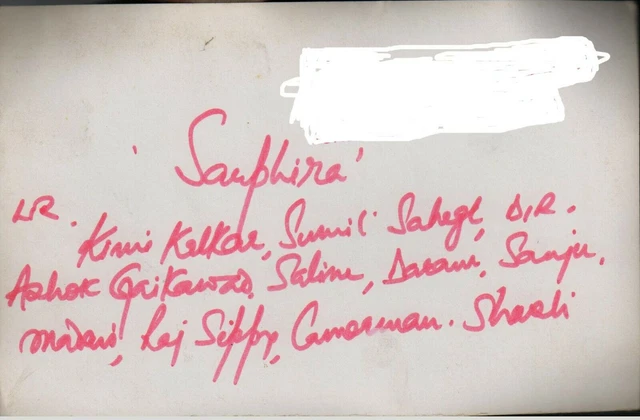 'Sarphira'
LR.
Kimi Katkar, Sumil Sahegl, DIR.
Ashok Gaikawad, Salim, Darani, Sanju,
madan, Raj Sippy, Camarman. Shashi